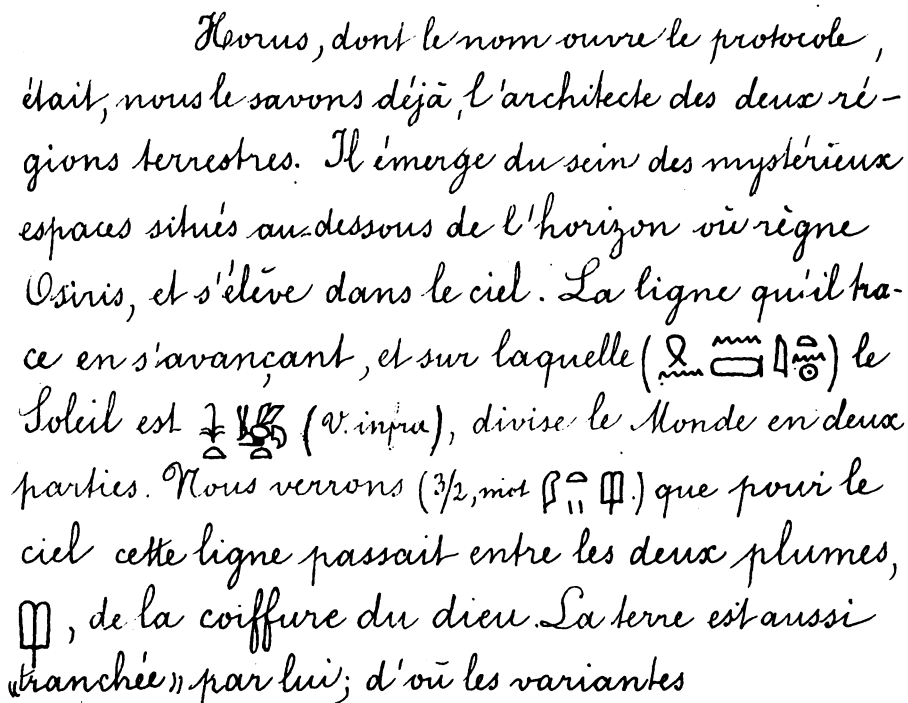 Horus, dont le nom ouvre le protocole,
était, nous le savons déjà, l'architecte des deux ré-
gions terrestres. Il émerge du sein des mystérieux
espaces situés au-dessous de l'horizon où règne
Osiris, et s'élève dans le ciel. La ligne qu'il tra-
ce en s'avançant, et sur laquelle ( ) le
Soleil est (V. infra), divise le Monde en deux
parties. Nous verrons (3/2, mot .) que pour le
ciel cette ligne passait entre les deux plumes,
, de la coiffure du dieu. La terre est aussi
«tranchée» par lui; d'où les variantes